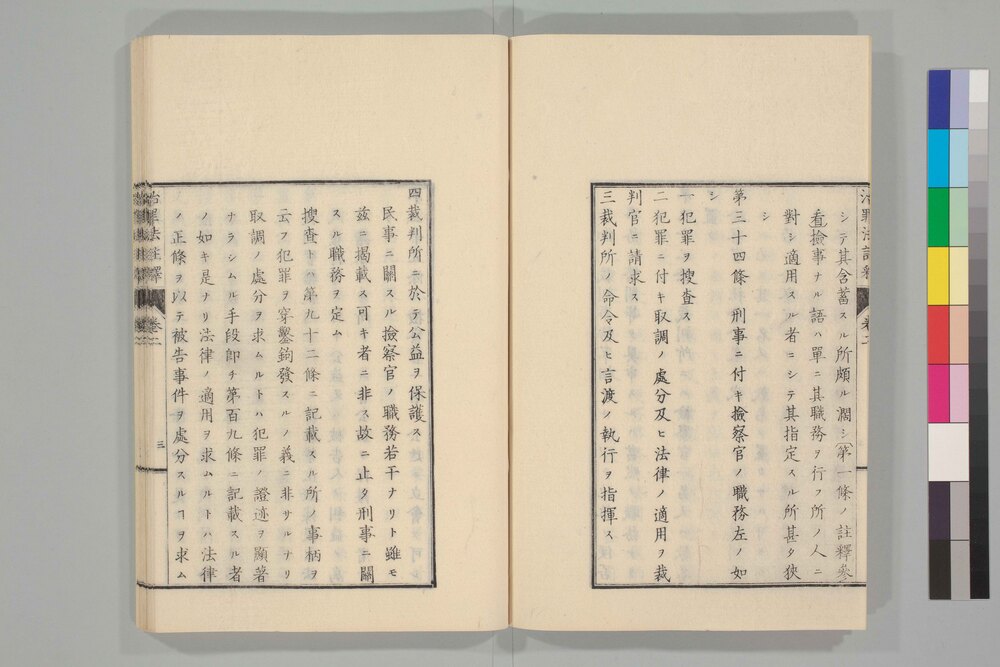 シテ其含蓄スル所頗ル濶シ(第一條ノ註釋參
看撿事ナル語ハ單ニ其職務ヲ行フ所ノ人ニ
對シ適用スル者ニシテ其指定スル所甚タ狹
シ
第三十四條 刑事ニ付キ撿察官ノ職務左ノ如
シ
一 犯罪ヲ搜査ス
二 犯罪ニ付キ取調ノ處分及ヒ法律ノ適用ヲ裁
判官ニ請求ス
三 裁判所ノ命令及ヒ言渡ノ執行ヲ指揮ス
四 裁判所ニ於テ公益ヲ保護ス
民事ニ關スル撿察官ノ職務若干ナリト雖モ
茲ニ揭載ス可キ者ニ非ス故ニ止タ刑事ニ關
スル職務ヲ定ム
搜查トハ第九十二條ニ記載スル所ノ事柄ヲ
云フ犯罪ヲ穿鑿鉤發スルノ義ニ非サルナリ
取調ノ處分ヲ求ムルトハ犯罪ノ證迹ヲ顯著
ナラシムル手段卽チ第百九條ニ記載スル者
ノ如キ是ナリ法律ノ適用ヲ求ムルトハ法律
ノ正條ヲ以テ被告事件ヲ處分スルヿヲ求ム
治罪法註釋 卷二 三